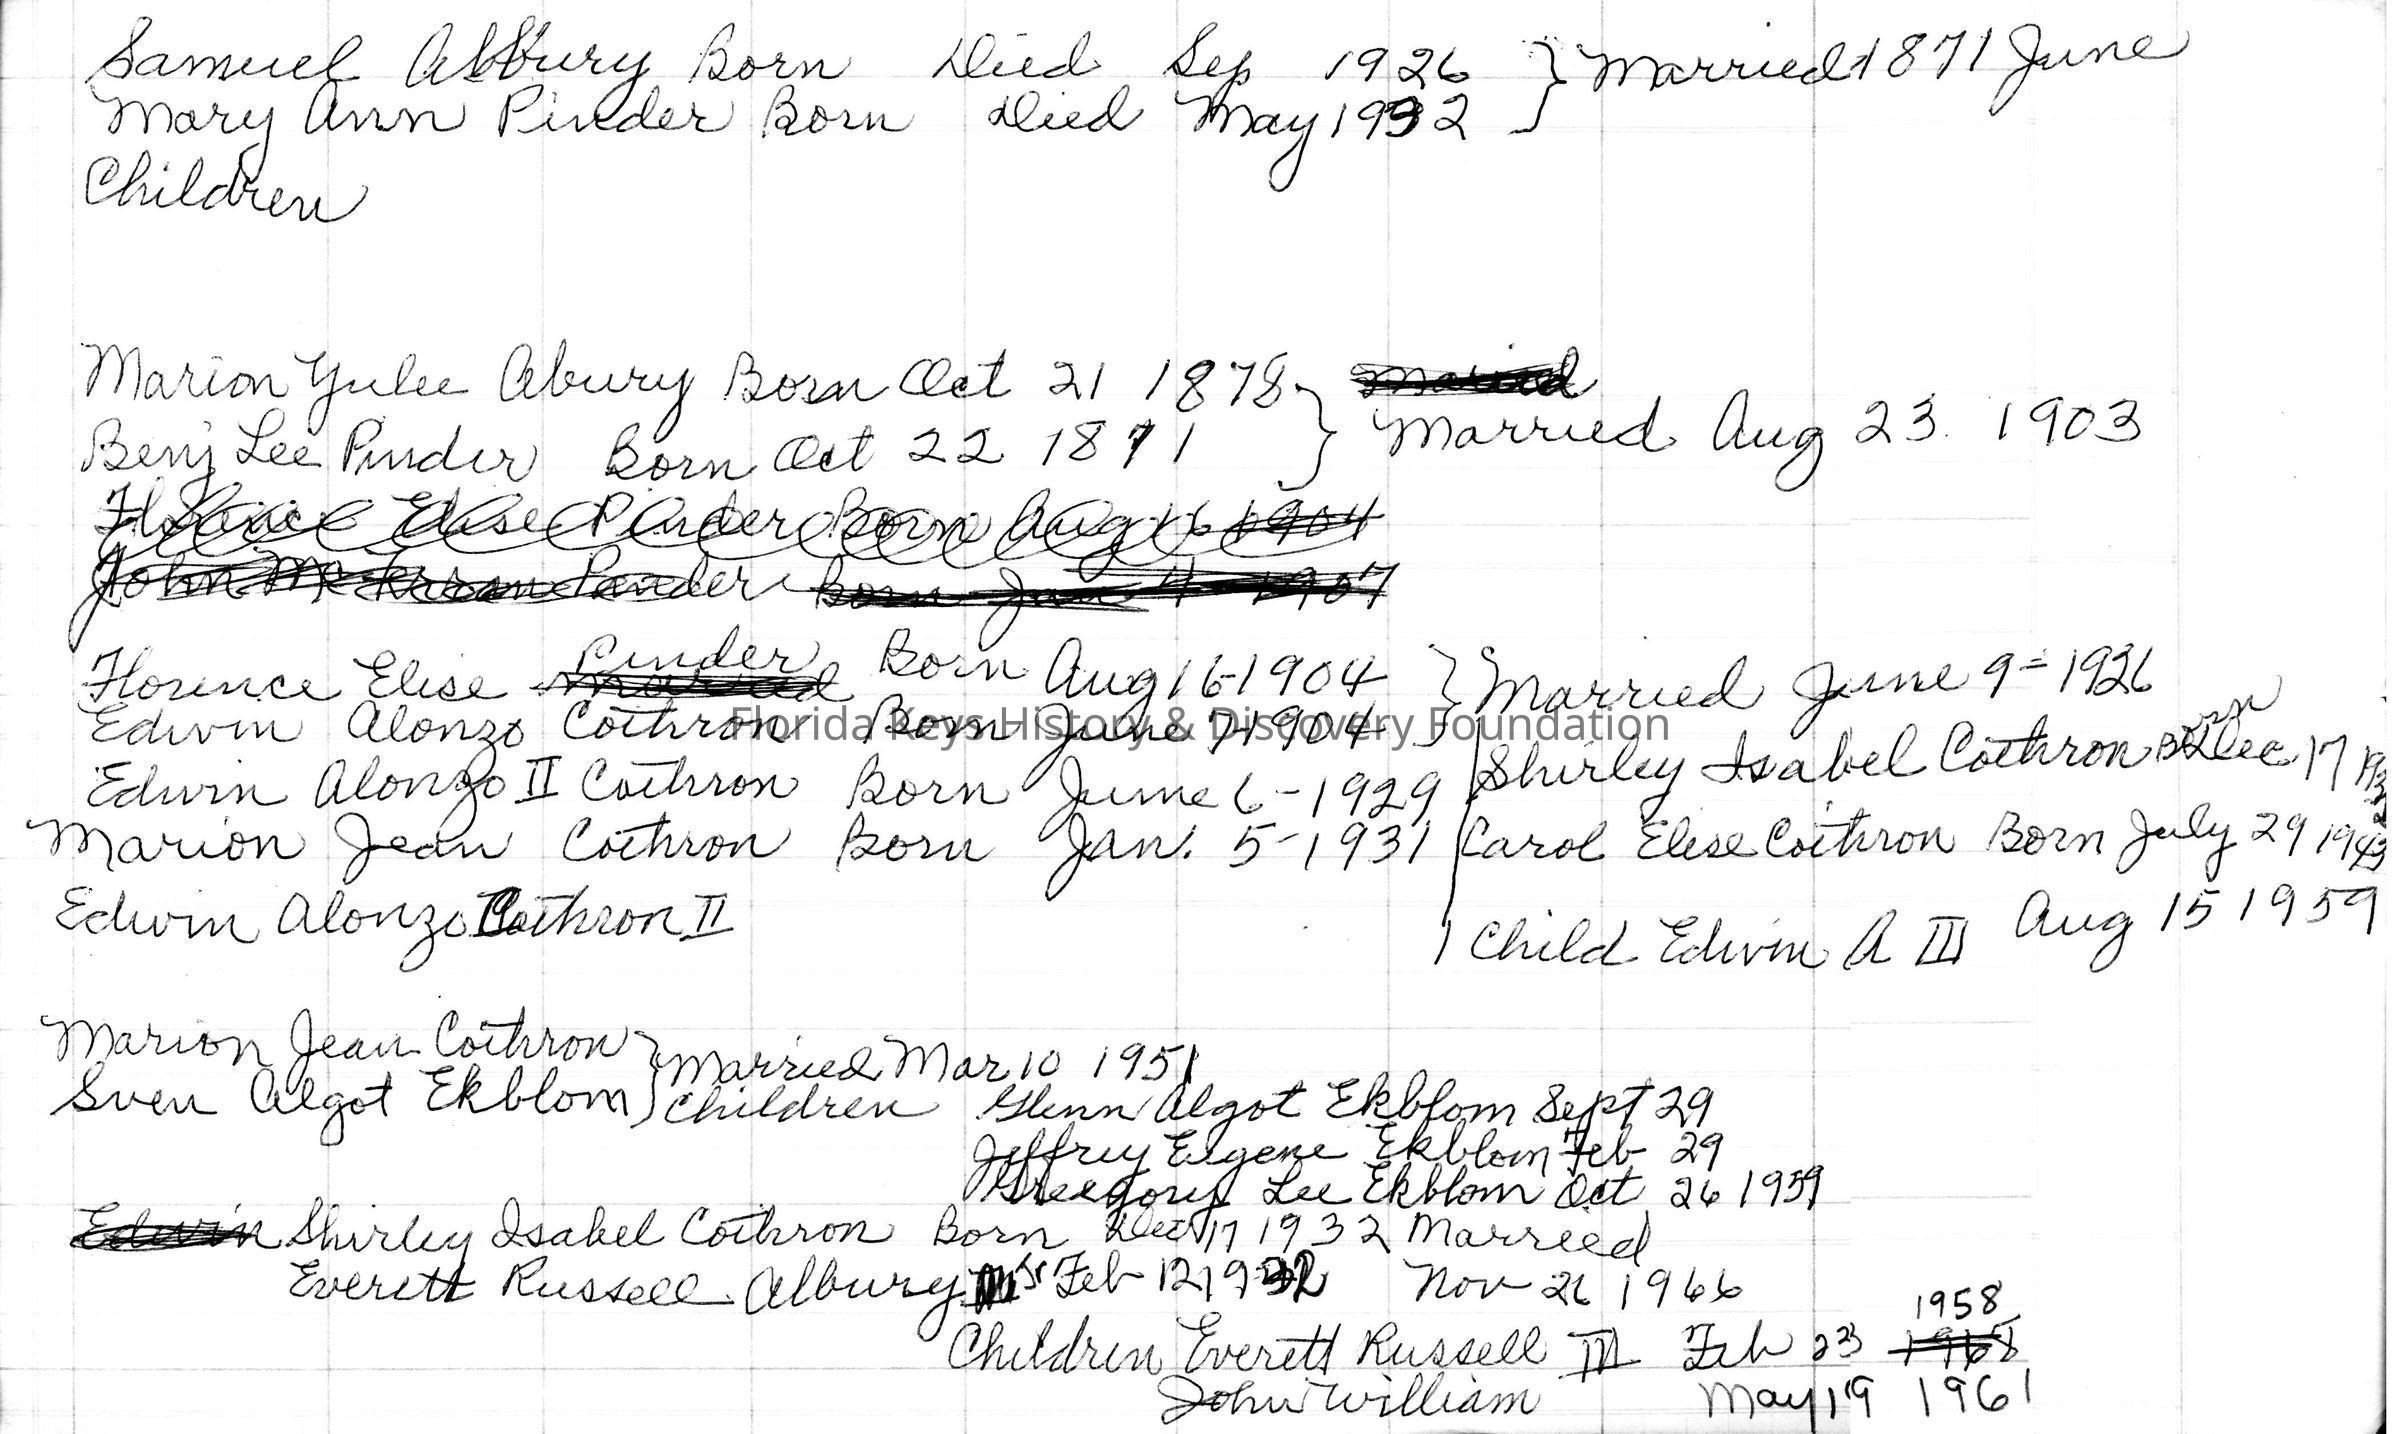 Samuel Albury Born Died Sep 1926 } Married 1871 June
Mary Ann Pinder Born Died May 1932
Children
Marion Yulee Abury Born Oct 21 1878 } Married
Benj Lee Pinder Born Oct 22 1871 Married Aug 23. 1903
Florence Elise Pinder Born Aug 16 1904
John Pinder Born 4 1907
Florence Elise Married Pinder Born Aug 16-1904 } Married June 9-1926
Edwin Alonzo Cothron Born June 7-1904
Florida Keys History & Discovery Foundation
Shirley Isabel Cothron Born Dec 17
Edwin Alonzo II Cothron Born June 6-1929
Marion Jean Cothron Born Jan. 5-1931 Carol Elise Cothron Born July 29 1943
Edwin Alonzo Cothron II 1 Child Edwin A III Aug 15 1959
Marion Jean Cothron } Married Mar 10 1951
Sven Algot Ekblom Children Glenn Algot Ekblom Sept 29
Jeffrey Eugene Ekblom Feb 29
Gregory Lee Ekblom Oct 26 1959
Edwin Shirley Isabel Cothron Born Dec 17 1932 Married
Everett Russell Albury Jr Feb 12 Nov 26 1966
Children Everett Russell III Feb 23 1968 1958
John William May 19 1961